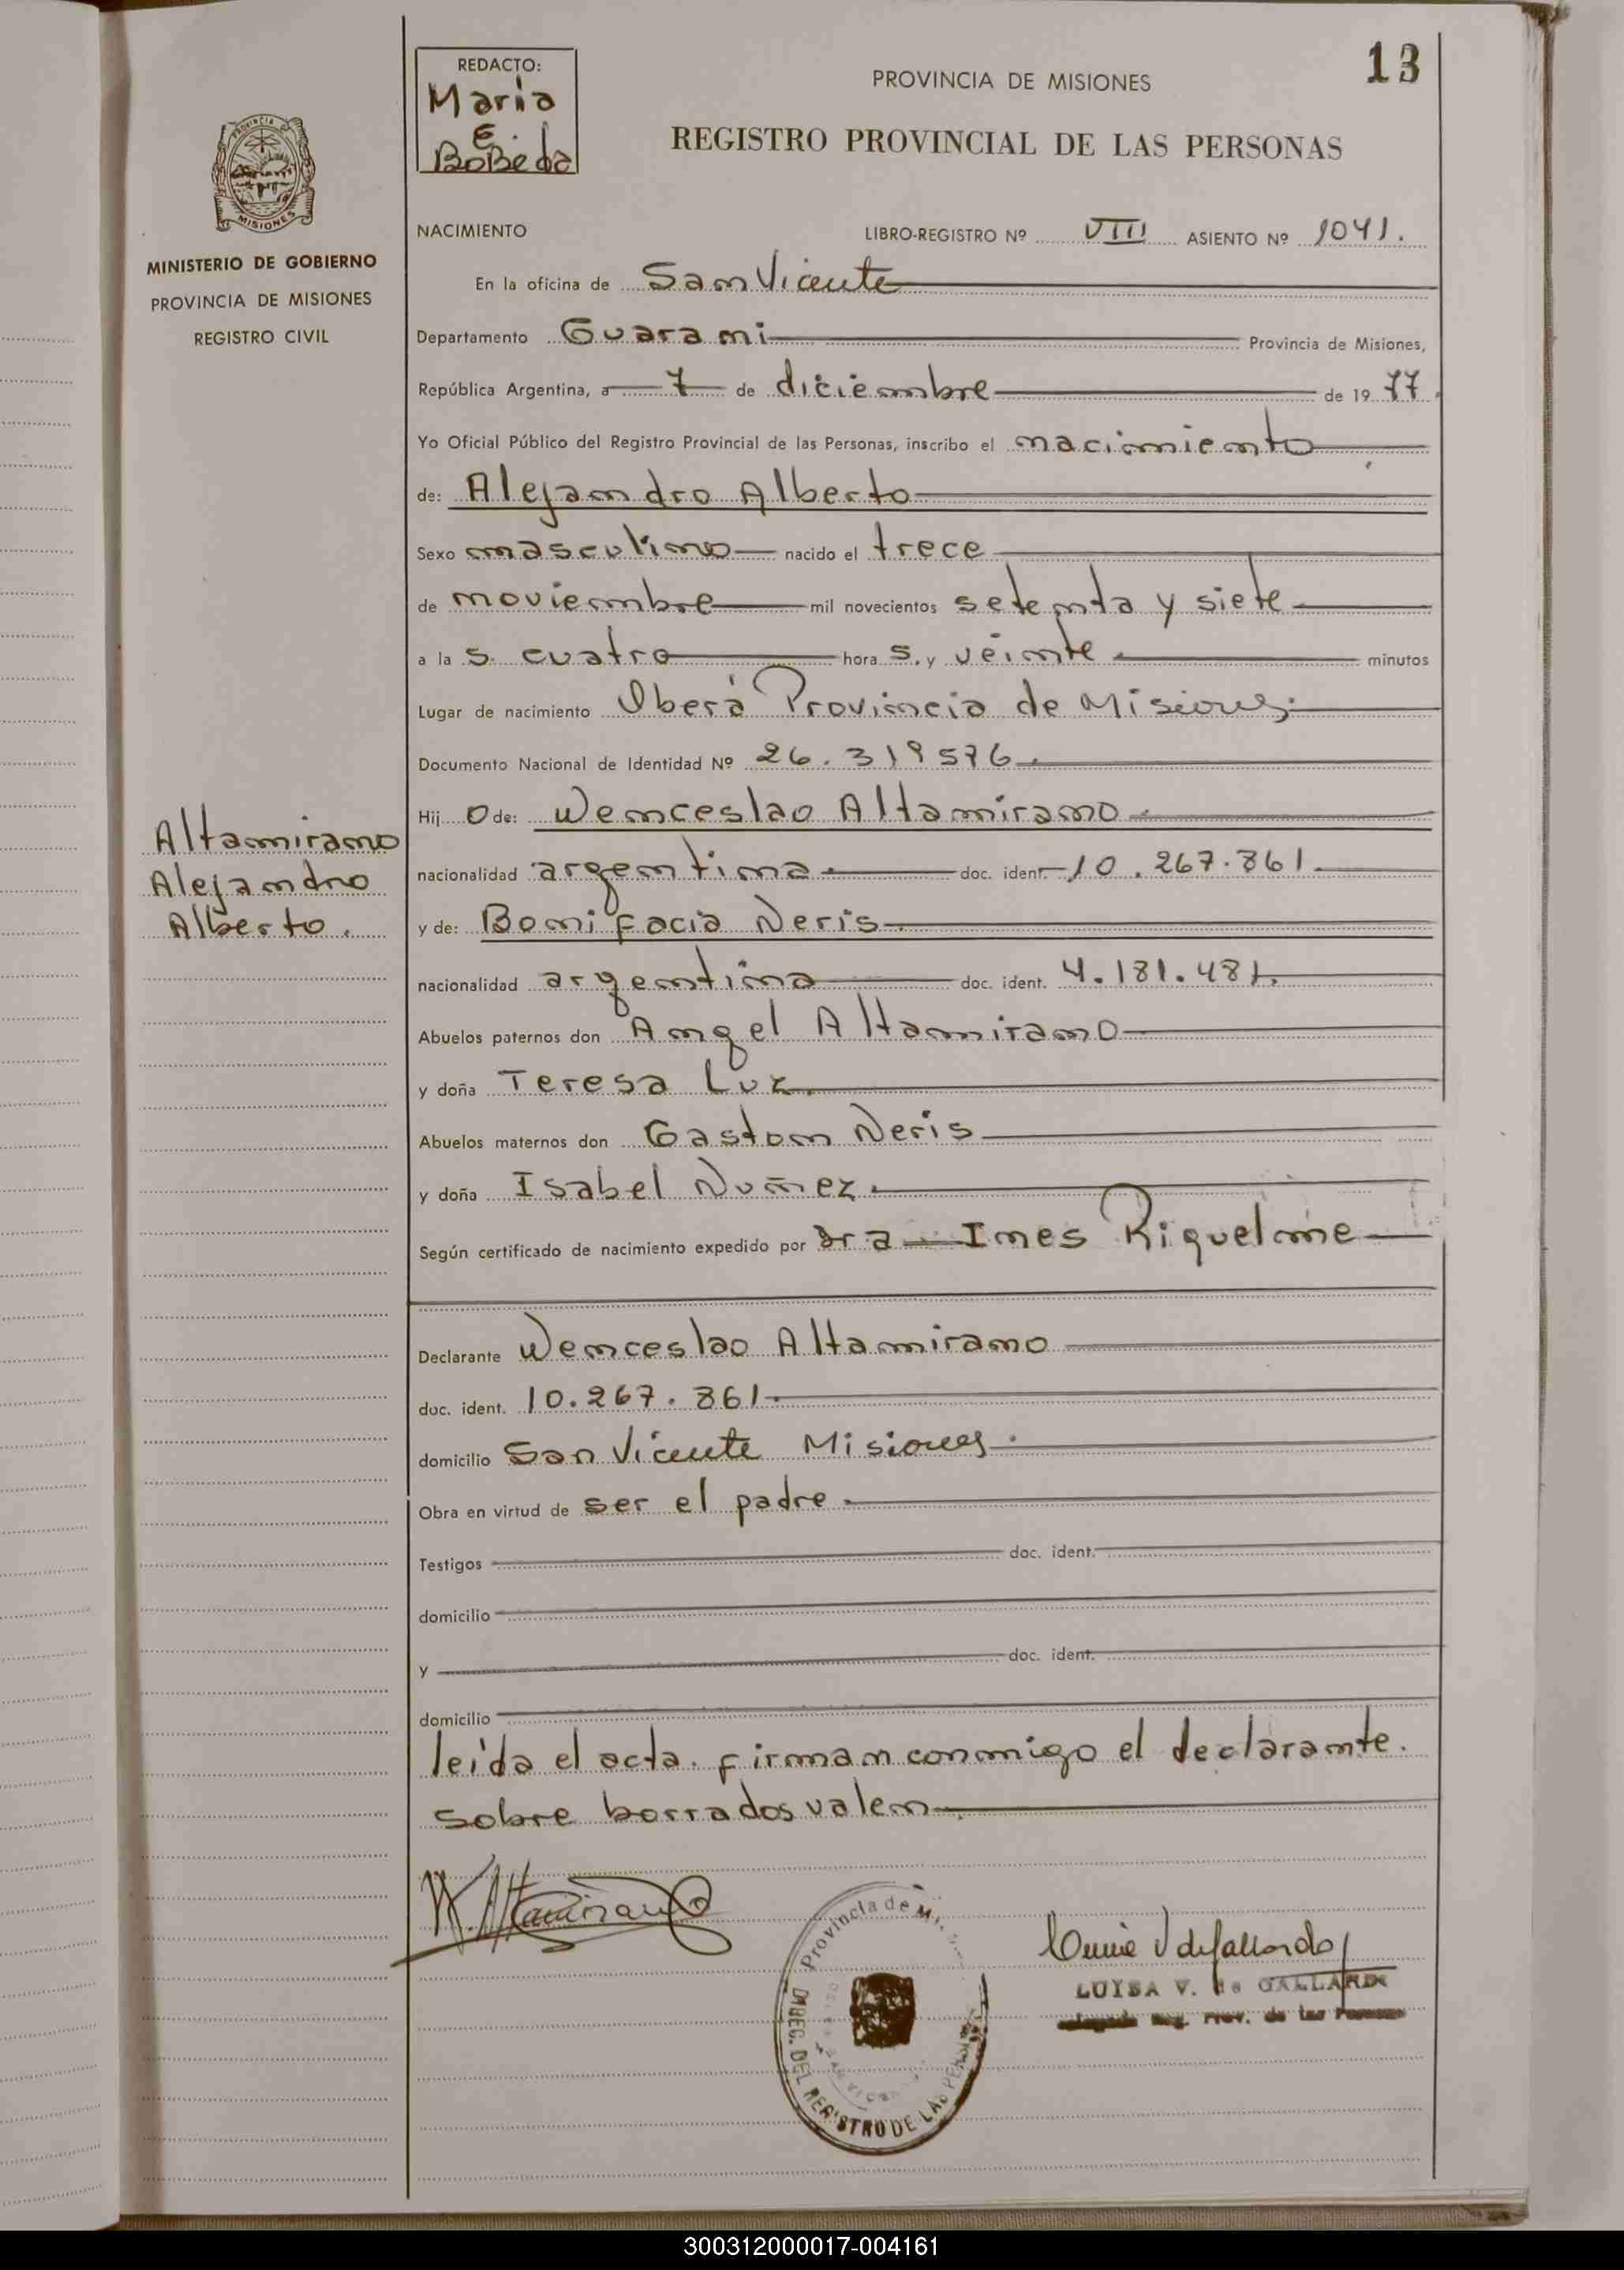 13
REDACTO:
Maria
E.
BoBeda
PROVINCIA DE MISIONES
REGISTRO PROVINCIAL DE LAS PERSONAS
PROVINCIA DE
MISIONES
MINISTERIO DE GOBIERNO
PROVINCIA DE MISIONES
REGISTRO CIVIL
NACIMIENTO LIBRO-REGISTRO Nº VIII ASIENTO Nº 1041.
En la oficina de San Vicente
Departamento Guarani Provincia de Misiones,
República Argentina, a 7 de diciembre de 1977.
Yo Oficial Público del Registro Provincial de las Personas, inscribo el nacimiento
de: Alejandro Alberto
Sexo masculino nacido el trece
de noviembre mil novecientos setenta y siete
a la s. cuatro hora s. y veinte minutos
Lugar de nacimiento Oberá Provincia de Misiones.
Documento Nacional de Identidad Nº 26.319576
Hij o de: Wenceslao Altamirano
nacionalidad argentina doc. ident. 10.267.861.
y de: Bonifacia Neris
nacionalidad argentina doc. ident. 4.181.481.
Abuelos paternos don Angel Altamirano
y doña Teresa Luz.
Abuelos maternos don Gaston Neris
y doña Isabel Nuñez.
Según certificado de nacimiento expedido por Dra Ines Riquelme
Altamirano
Alejandro
Alberto.
Declarante Wenceslao Altamirano
doc. ident. 10.267.861.
domicilio San Vicente Misiones.
Obra en virtud de ser el padre.
Testigos doc. ident.
domicilio
y doc. ident.
domicilio
leída el acta. firman conmigo el declarante.
sobre borrados valen
W. Altamirano
Provincia de
DIREC. DEL REGISTRO DE LAS PERSONAS
LUISA V. de GALLARDO
Reg. Prov. de las Personas
300312000017-004161